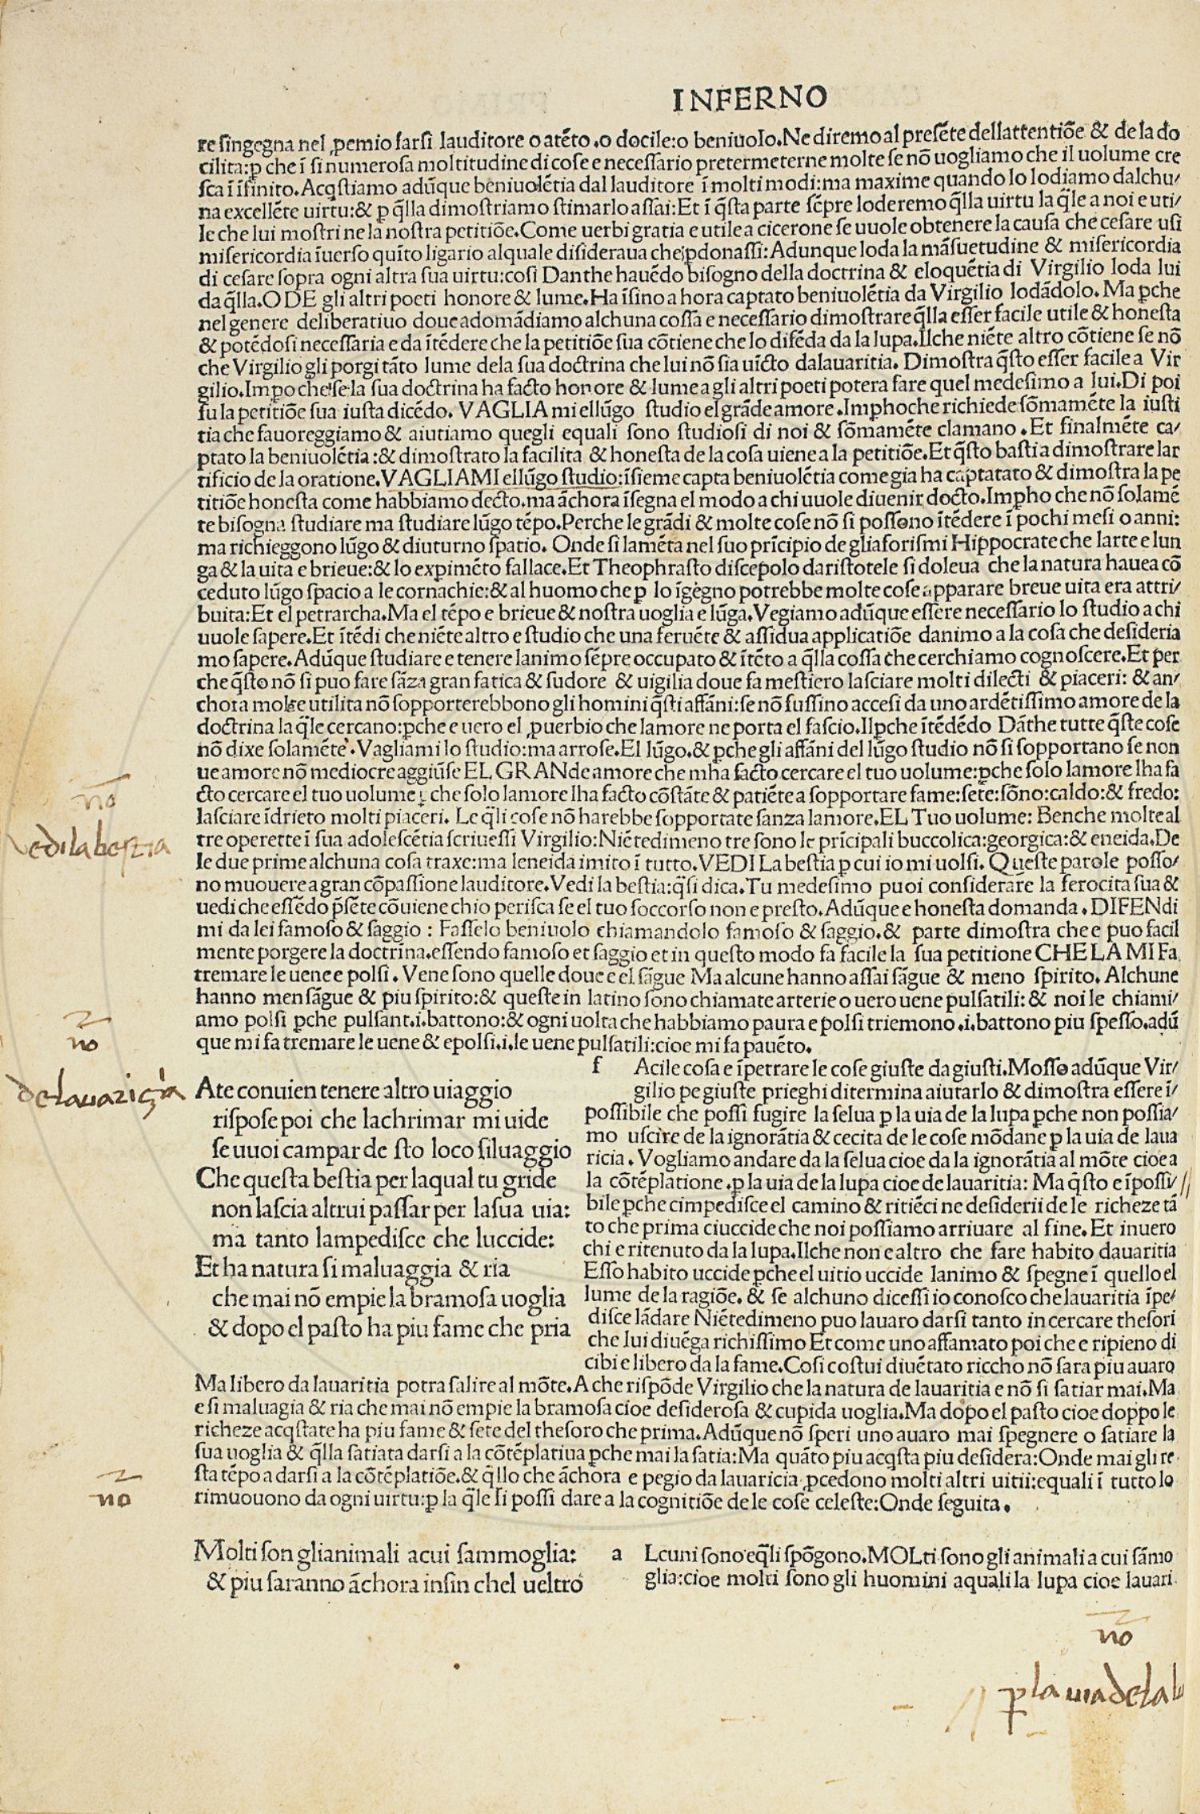 INFERNO
re singegna nel ꝓemio farsi lauditore o atẽto .o docile:o beniuolo.Ne diremo al presẽte dellattentiõe & de la do
cilita:ꝑ che ĩ si numerosa moltitudine di cose e necessario pretermeterne molte se nõ uogliamo che il uolume cre
sca ĩ ĩfinito.Acq̃stiamo adũque beniuolẽtia dal lauditore ĩ molti modi:ma maxime quando lo lodiamo dalchu/
na excellẽte uirtu:& ꝑ q̃lla dimostriamo stimarlo assai:Et ĩ q̃sta parte sẽpre loderemo q̃lla uirtu la q̃le a noi e uti/
le che lui mostri ne la nostra petitiõe.Come uerbi gratia e utile a cicerone se uuole obtenere la causa che cesare usi
misericordia ĩuerso quĩto ligario alquale disideraua che ꝑdonassi:Adunque loda la mãsuetudine & misericordia
di cesare sopra ogni altra sua uirtu:cosi Danthe hauẽdo bisogno della doctrina & eloquẽtia di Virgilio loda lui
da q̃lla.O DE gli altri poeti honore & lume.Ha ĩsino a hora captato beniuolẽtia da Virgilio lodãdolo. Ma ꝑche
nel genere deliberatiuo doue adomãdiamo alchuna cossa e necessario dimostrare q̃lla esser facile utile & honesta
& potẽdosi necessaria e da ĩtẽdere che la petitiõe sua cõtiene che lo difẽda da la lupa.Ilche niẽte altro cõtiene se nõ
che Virgilio gli porgi tãto lume dela sua doctrina che lui nõ sia uĩcto dalauaritia. Dimostra q̃sto esser facile a Vir
gilio.Impo che se la sua doctrina ha facto honore & lume a gli altri poeti potera fare quel medesimo a lui.Di poi
fu la petitiõe sua iusta dicẽdo. VAGLIA mi ellũgo studio el grãde amore.Imphoche richiede sõmamẽte la iusti
tia che fauoreggiamo & aiutiamo quegli equali sono studiosi di noi & sõmamẽte clamano . Et finalmẽte ca/
ptato la beniuolẽtia:& dimostrato la facilita & honesta de la cosa uiene a la petitiõe.Et q̃sto basti a dimostrare lar
tificio de la oratione.VAGLIAMI ellũgo studio:ĩsieme capta beniuolẽtia come gia ha captatato & dimostra la pe
titiõe honesta come habbiamo decto.ma ãchora ĩsegna el modo a chi uuole diuenir docto.Impho che nõ solamẽ
te bisogna studiare ma studiare lũgo tẽpo.Perche le grãdi & molte cose nõ si possono ĩtẽdere ĩ pochi mesi o anni:
ma richieggono lũgo & diuturno spatio. Onde si lamẽta nel suo prĩcipio de gliaforismi Hippocrate che larte e lun
ga & la uita e brieue:& lo expimẽto fallace.Et Theophrasto discepolo daristotele si doleua che la natura hauea cõ
ceduto lũgo spacio a le cornachie:& al huomo che ꝑ lo ĩgẽgno potrebbe molte cose apparare breue uita era attri/
buita:Et el petrarcha.Ma el tẽpo e brieue & nostra uoglia e lũga.Vegiamo adũque essere necessario lo studio a chi
uuole sapere.Et ĩtẽdi che niẽte altro e studio che una feruẽte & assidua applicatiõe danimo a la cosa che desideria
mo sapere.Adũque studiare e tenere lanimo sẽpre occupato & ĩtẽto a q̃lla cossa che cerchiamo cognoscere.Et per
che q̃sto nõ si puo fare sãza gran fatica & sudore & uigilia doue fa mestiero lasciare molti dilecti & piaceri: & an/
chora molte utilita nõ sopporterebbono gli homini q̃sti affãni:se nõ fussino accesi da uno ardẽtissimo amore de la
doctrina la q̃le cercano:ꝑche e uero el ꝓuerbio che lamore ne porta el fascio.Il ꝑche ĩtẽdẽdo Dãthe tutte q̃ste cose
nõ dixe solamẽte.Vagliami lo studio:ma arrose.El lũgo.& ꝑche gli affãni del lũgo studio nõ si sopportano se non
ue amore nõ mediocre aggiũse EL GRANde amore che mha facto cercare el tuo uolume:ꝑche solo lamore lha fa
cto cercare el tuo uolume ꝑ che solo lamore lha facto cõstãte & patiẽte a sopportare fame:sete:sõno:caldo:& fredo:
lasciare ĩdrieto molti piaceri. Le q̃li cose nõ harebbe sopportate sanza lamore.EL Tuo uolume: Benche molte al
tre operette ĩ sua adolescẽtia scriuessi Virgilio:Niẽtedimeno tre sono le prĩcipali buccolica:georgica:& eneida.De
le due prime alchuna cosa traxe:ma leneida imito ĩ tutto.VEDI La bestia ꝑ cui io mi uolsi. Queste parole posso/
no muouere a gran cõpassione lauditore.Vedi la bestia:q̃si dica.Tu medesimo puoi considerare la ferocita sua &
uedi che essẽdo p̃sẽte cõuiene chio perisca se el tuo soccorso non e presto.Adũque e honesta domanda .DIFENdi
mi da lei famoso & saggio : Fasselo beniuolo chiamandolo famoso & saggio.& parte dimostra che e puo facil
mente porgere la doctrina.essendo famoso et saggio et in questo modo fa facile la sua petitione CHE LA MI Fa
tremare le uene e polsi . Vene sono quelle doue e el sãgue Ma alcune hanno assai sãgue & meno spirito. Alchune
hanno men sãgue & piu spirito:& queste in latino sono chiamate arterie o uero uene pulsatili:& noi le chiami/
amo polsi ꝑche pulsant.i.battono:& ogni uolta che habbiamo paura e polsi triemono.i.battono piu spesso.adũ
que mi fa tremare le uene & epolsi.i.le uene pulsatili:cioe mi fa pauẽto.
nõ
vedi la bestia
nõ
de lauarizia
Ate conuien tenere altro uiaggio
rispose poi che lachrimar mi uide
se uuoi campar de sto loco siluaggio
Che questa bestia per laqual tu gride
non lascia altrui passar per la sua uia:
ma tanto lampedisce che luccide:
Et ha natura si maluaggia & ria
che mai nõ empie la bramosa uoglia
& dopo el pasto ha piu fame che pria
f Acile cosa e ĩpetrare le cose giuste da giusti.Mosso adũque Vir/
gilio pe giuste prieghi ditermina aiutarlo & dimostra essere ĩ/
possibile che possi fugire la selua ꝑ la uia de la lupa ꝑche non possia/
mo uscire de la ignorãtia & cecita de le cose mõdane ꝑ la uia de laua
ricia . Vogliamo andare da la selua cioe da la ignorãtia al mõte cioe a
la cõtẽplatione.ꝑ la uia de la lupa cioe de lauaritia: Ma q̃sto e ĩpossi/
bile ꝑche cimpedisce el camino & ritiẽci ne desiderii de le richeze tã
to che prima ciuccide che noi possiamo arriuare al fine. Et inuero
chi e ritenuto da la lupa.Ilche non e altro che fare habito dauaritia
Esso habito uccide ꝑche el uitio uccide lanimo & spegne ĩ quello el
lume de la ragiõe. & se alchuno dicessi io conosco che lauaritia ĩpe/
disce lãdare Niẽtedimeno puo lauaro darsi tanto in cercare thesori
che lui diuẽga richissimo Et come uno affamato poi che e ripieno di
cibi e libero da la fame.Cosi costui diuẽtato riccho nõ sara piu auaro
Ma libero da lauaritia potra salire al mõte.A che rispõde Virgilio che la natura de lauaritia e nõ si satiar mai.Ma
e si maluagia & ria che mai nõ empie la bramosa cioe desiderosa & cupida uoglia.Ma dopo el pasto cioe doppo le
richeze acq̃state ha piu fame & sete del thesoro che prima.Adũque nõ speri uno auaro mai spegnere o satiare la
sua uoglia & q̃lla satiata darsi a la cõtẽplatiua ꝑche mai la satia:Ma quãto piu acq̃sta piu desidera:Onde mai gli re
sta tẽpo a darsi a la cõtẽplatiõe.& q̃llo che ãchora e pegio da lauaricia ꝓcedono molti altri uitii:equali ĩ tutto lo
rimuouono da ogni uirtu:ꝑ la q̃le si possi dare a la cognitiõe de le cose celeste:Onde seguita.
nõ
Molti son glianimali a cui sammoglia:
& piu saranno ãchora insin chel ueltro
a Lcuni sono e q̃li spõgono.MOLti sono gli animali a cui sãmo
glia:cioe molti sono gli huomini a quali la lupa cioe lauari
nõ
ꝑ la uia de la lu